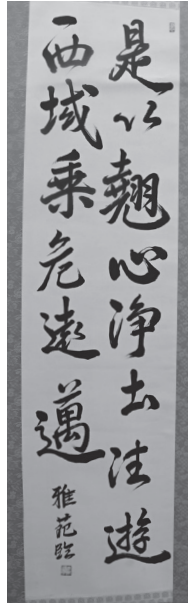 是以翹心浄土法遊
西域乗危遠邁
雅苑臨